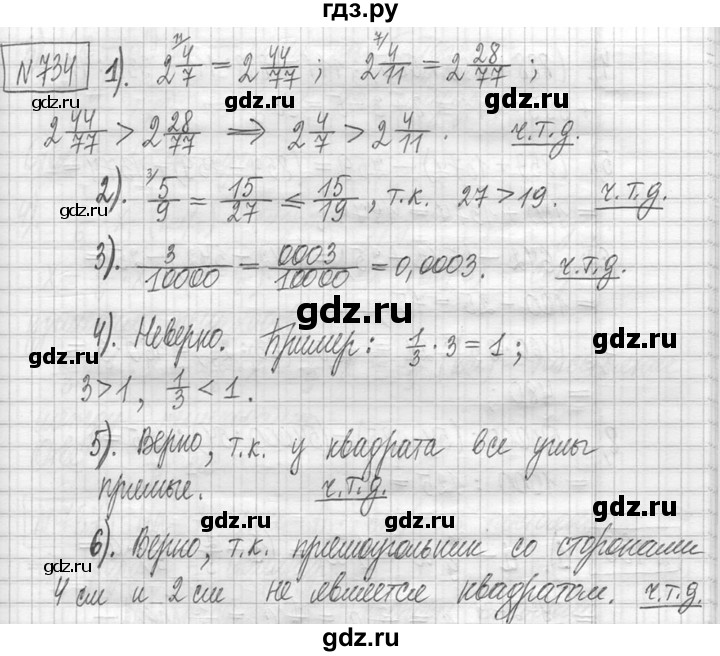 гдз.ру
№734 1). 2 4/7 (11/) = 2 44/77 ; 2 4/11 (7/) = 2 28/77 ;
gdz.ru gdz.ru gdz.ru
2 44/77 > 2 28/77 ⟹ 2 4/7 > 2 4/11 . ч.т.д.
2). 5/9 (3/) = 15/27 ≤ 15/19 , т.к. 27 > 19. ч.т.д.
gdz.ru gdz.ru gdz.ru
3). 3/10000 = 0003/10000 = 0,0003. ч.т.д.
gdz.ru
4). Неверно. Пример: 1/3 · 3 = 1 ;
gdz.ru gdz.ru
3 > 1 , 1/3 < 1 .
5). Верно, т.к. у квадрата все углы
gdz.ru gdz.ru
прямые. ч.т.д.
gdz.ru gdz.ru
6). Верно, т.к. прямоугольник со сторонами
gdz.ru gdz.ru
4 см и 2 см не является квадратом. ч.т.д.
gdz.ru